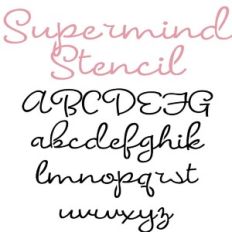 Supermind
Stencil
ABCDEFG
abcdefghik
lmnopqrst
uvwxyz